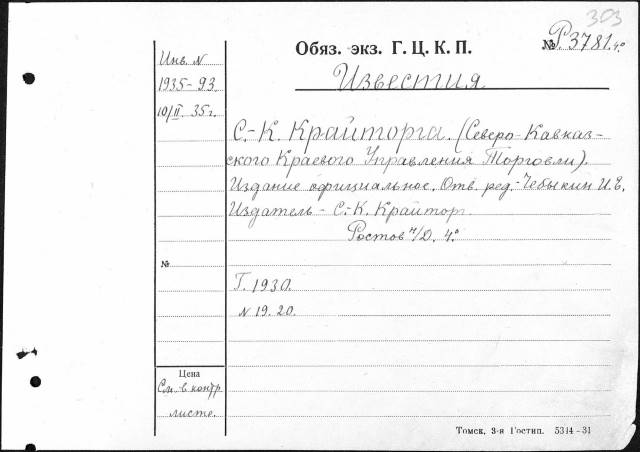 303
Обяз. экз. Г. Ц. К. П.
№ Р.3781.4°
Известия
Инв. N
1935-93
10/II. 35г.
С.-К. Крайторга. (Северо-Кавказ-
ского Краевого Управления Торговли).
Издание официальное. Отв. ред.-Чебыкин И.Е.
Издатель - С.-К. Крайторг.
Ростов н/Д. 4°
№
Г. 1930.
N 19. 20.
Цена
См. в контр
листе.
Томск, 3-я Гостип. 5314-31